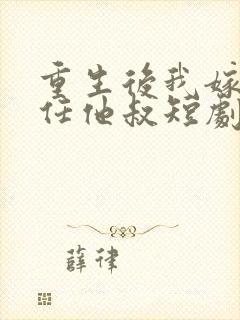 重生後我嫁
任他叔短劇
薛律